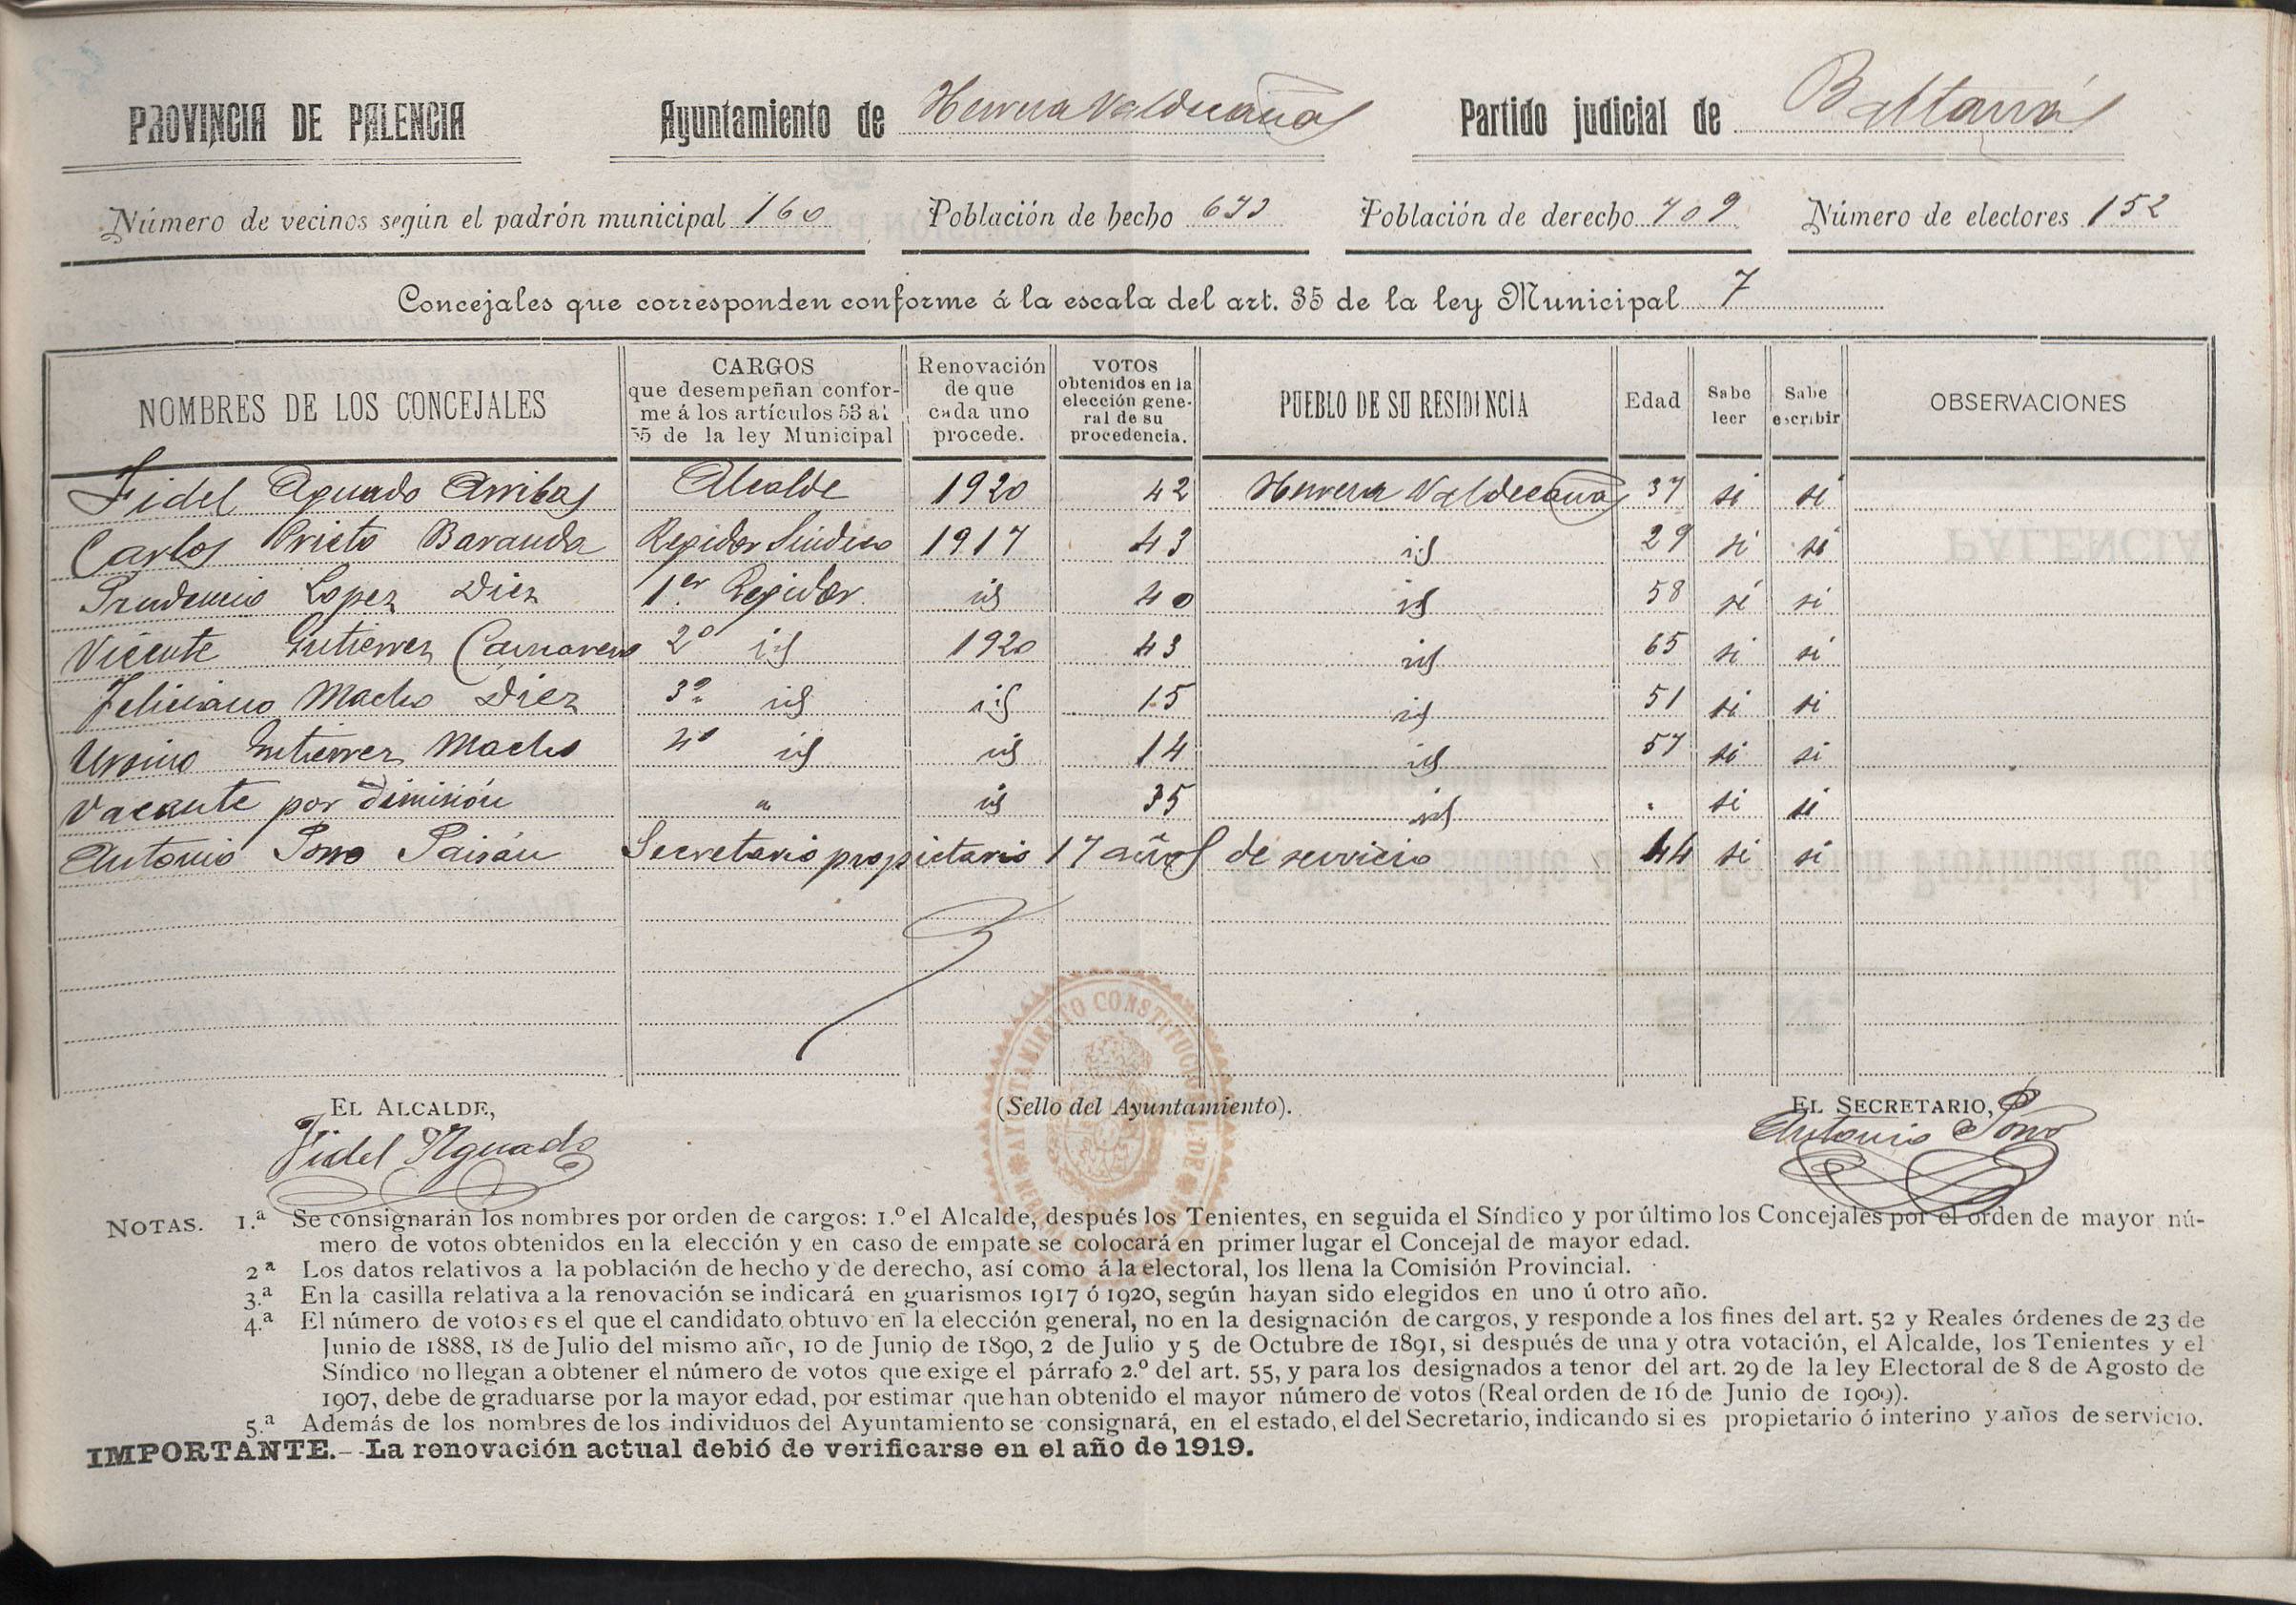 PROVINCIA DE PALENCIA Ayuntamiento de Herrera Valdecañas Partido judicial de Baltanás
Número de vecinos según el padrón municipal 160 Población de hecho 673 Población de derecho 709 Número de electores 152
Concejales que corresponden conforme á la escala del art. 35 de la ley Municipal 7
NOMBRES DE LOS CONCEJALES
CARGOS
que desempeñan confor-
me á los artículos 53 al
55 de la ley Municipal
Renovación
de que
cada uno
procede.
VOTOS
obtenidos en la
elección gene-
ral de su
procedencia.
PUEBLO DE SU RESIDENCIA
Edad
Sabe
leer
Sabe
escribir
OBSERVACIONES
Fidel Aguado Arribas Alcalde 1920 42 Herrera Valdecañas 37 si si
Carlos Prieto Baranda Regidor Síndico 1917 43 id 29 si si
Prudencio Lopez Diez 1er Regidor id 40 id 58 si si
Vicente Gutierrez Camarero 2º id 1920 43 id 65 si si
Feliciano Macho Diez 3º id id 15 id 51 si si
Ursino Gutierrez Macho 4º id id 14 id 57 si si
Vacante por dimisión " id 35 id . si si
Antonio Porro Secretario propietario 17 años de servicio 44 si si
EL ALCALDE, (Sello del Ayuntamiento). EL SECRETARIO,
Fidel Aguado Antonio Porro
AYUNTAMIENTO CONSTITUCIONAL DE
NOTAS. 1.ª Se consignarán los nombres por orden de cargos: 1.º el Alcalde, después los Tenientes, en seguida el Síndico y por último los Concejales por el orden de mayor nú-
mero de votos obtenidos en la elección y en caso de empate se colocará en primer lugar el Concejal de mayor edad.
2ª Los datos relativos a la población de hecho y de derecho, así como á la electoral, los llena la Comisión Provincial.
3.ª En la casilla relativa a la renovación se indicará en guarismos 1917 ó 1920, según hayan sido elegidos en uno ú otro año.
4.ª El número de votos es el que el candidato obtuvo en la elección general, no en la designación de cargos, y responde a los fines del art. 52 y Reales órdenes de 23 de
Junio de 1888, 18 de Julio del mismo año, 10 de Junio de 1890, 2 de Julio y 5 de Octubre de 1891, si después de una y otra votación, el Alcalde, los Tenientes y el
Síndico no llegan a obtener el número de votos que exige el párrafo 2.º del art. 55, y para los designados a tenor del art. 29 de la ley Electoral de 8 de Agosto de
1907, debe de graduarse por la mayor edad, por estimar que han obtenido el mayor número de votos (Real orden de 16 de Junio de 1909).
5.ª Además de los nombres de los individuos del Ayuntamiento se consignará, en el estado, el del Secretario, indicando si es propietario ó interino y años de servicio.
IMPORTANTE.--La renovación actual debió de verificarse en el año de 1919.